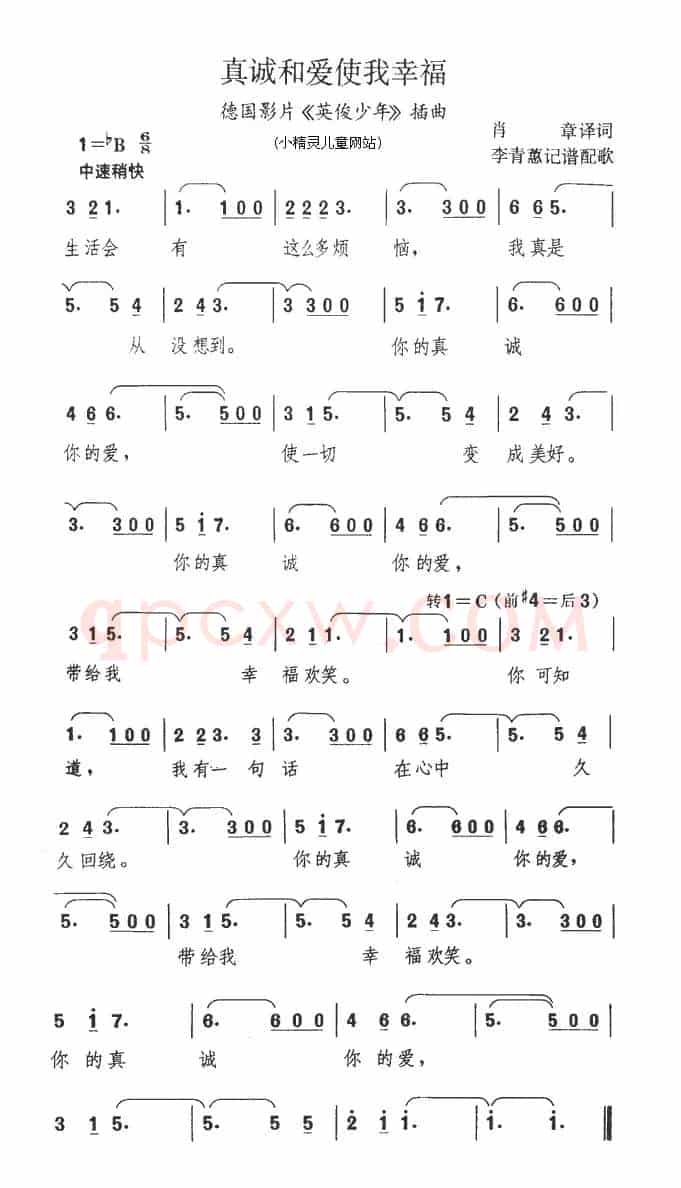 真诚和爱使我幸福
德国影片《英俊少年》插曲
(小精灵儿童网站)
肖 章译词
李青蕙记谱配歌
1=♭B 6/8
中速稍快
3 2 1. | 1. 1 0 0 | 2 2 2 3. | 3. 3 0 0 | 6 6 5. |
生活会 有 这么多烦 恼, 我真是
5. 5 4 | 2 4 3. | 3 3 0 0 | 5 i 7. | 6. 6 0 0 |
从 没想到。 你的真 诚
4 6 6. | 5. 5 0 0 | 3 1 5. | 5. 5 4 | 2 4 3. |
你的爱, 使一切 变 成美好。
3. 3 0 0 | 5 i 7. | 6. 6 0 0 | 4 6 6. | 5. 5 0 0 |
你的真 诚 你的爱,
转1=C(前♯4=后3)
3 1 5. | 5. 5 4 | 2 1 1. | 1. 1 0 0 | 3 2 1. |
带给我 幸 福欢笑。 你可知
qpcxw.com
1. 1 0 0 | 2 2 3. 3 | 3. 3 0 0 | 6 6 5. | 5. 5 4 |
道, 我有一 句 话 在心中 久
2 4 3. | 3. 3 0 0 | 5 i 7. | 6. 6 0 0 | 4 6 6. |
久回绕。 你的真 诚 你的爱,
5. 5 0 0 | 3 1 5. | 5. 5 4 | 2 4 3. | 3. 3 0 0 |
带给我 幸 福欢笑。
5 i 7. | 6. 6 0 0 | 4 6 6. | 5. 5 0 0 |
你的真 诚 你的爱,
3 1 5. | 5. 5 5 | 2 i i. | i. i. ‖